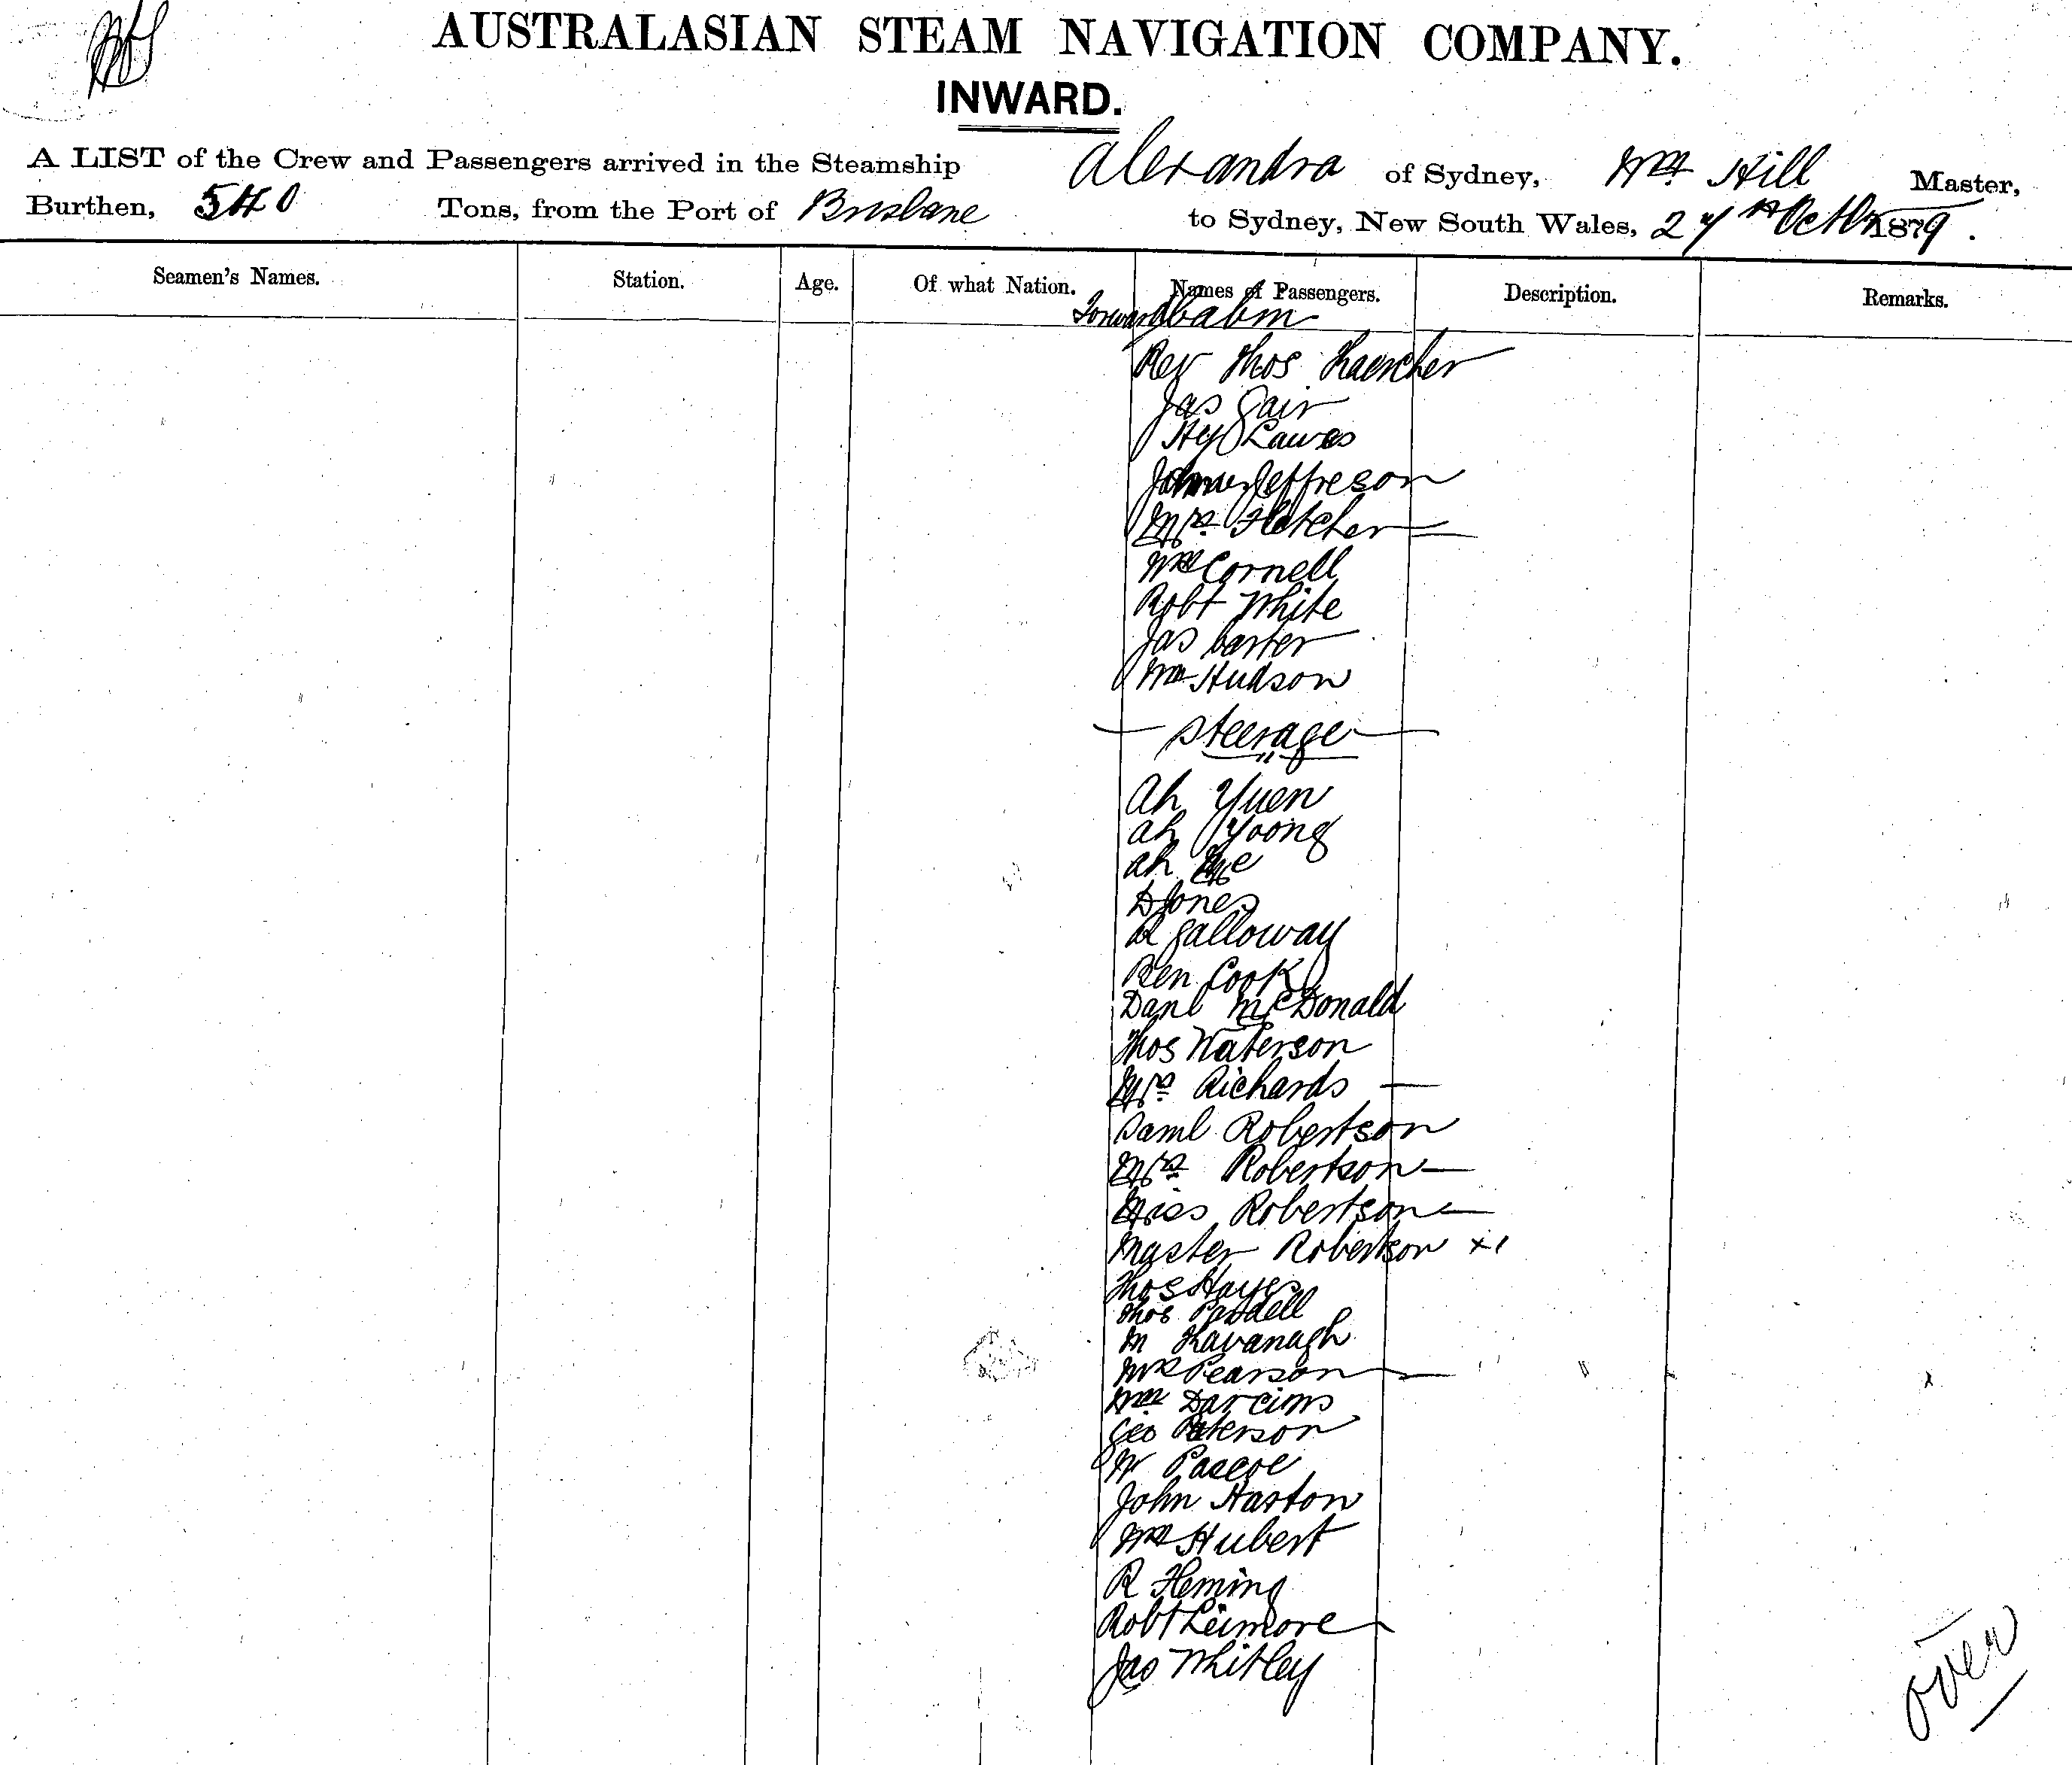 AUSTRALASIAN STEAM NAVIGATION COMPANY.
INWARD.
A LIST of the Crew and Passengers arrived in the Steamship Alexandra of Sydney, Wm Hill Master,
Burthen, 540 Tons, from the Port of Brisbane to Sydney, New South Wales, 27th Octbr 1879.
Seamen's Names. Station. Age. Of what Nation. Names of Passengers. Description. Remarks.
Forward Cabin
Rev Thos
Jas Gair
Hy Lawes
Jeffreson
Mrs Fletcher
Wm Cornell
Robt White
Jas Carter
Wm Hudson
Steerage
Ah Yuen
Ah Yoong
Ah
D Jones
R Galloway
Ben Cook
Danl McDonald
Thos Waterson
Mrs Richards
Saml Robertson
Mrs Robertson
Miss Robertson
Master Robertson x1
Thos Hayes
Thos
M Kavanagh
Mrs Pearson
Wm
Geo Paterson
W Pascoe
John Haston
Wm Hubert
R Fleming
Robt
Jas Whitley
over